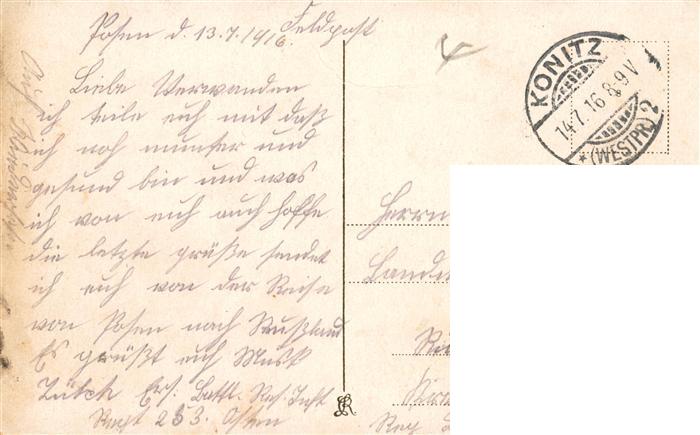 Posen d. 13.7.1916 Feldpost
Liebe Verwanden
ich teile euch mit daß
ich noh munter und
gesund bin und was
ich von euch auch hoffe
die letzte grüße sendet
ich euch von der Reise
von Posen nach Rußland
Es grüßt euch Musk
Ers. Battl. Res. Inft
Regt 253. Osten
Auf Wiedersehn
KONITZ
14.7.16 8-9V
*(WESTPR.) 2
Herrn